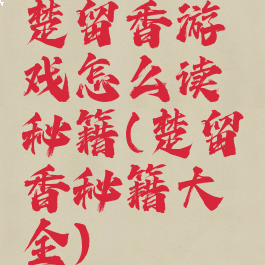 楚留香游
戏怎么读
秘籍(楚留
香秘籍大
全)